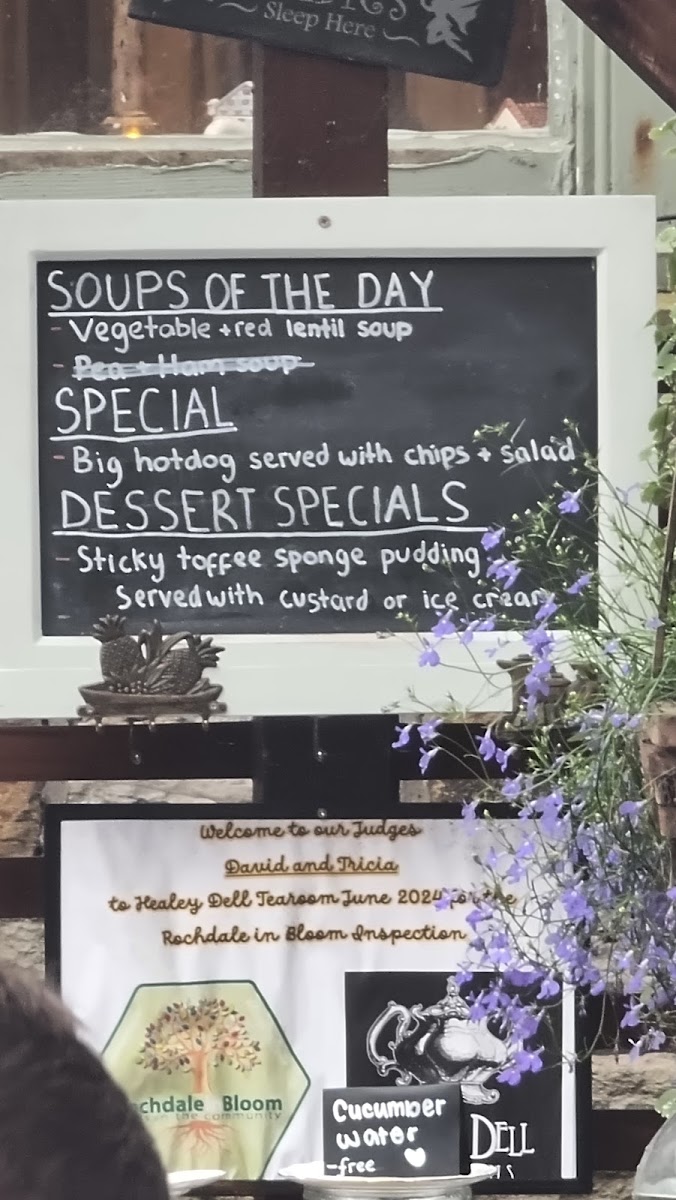 Sleep Here
SOUPS OF THE DAY
- Vegetable + red lentil soup
- Pea + Ham soup
SPECIAL
- Big hotdog served with chips + salad
DESSERT SPECIALS
- Sticky toffee sponge pudding
Served with custard or ice cream
-
Welcome to our Judges
David and Tricia
to Healey Dell Tearoom June 2024 for the
Rochdale in Bloom Inspection
chdale Bloom
in the community
Cucumber
water
-free
DELL